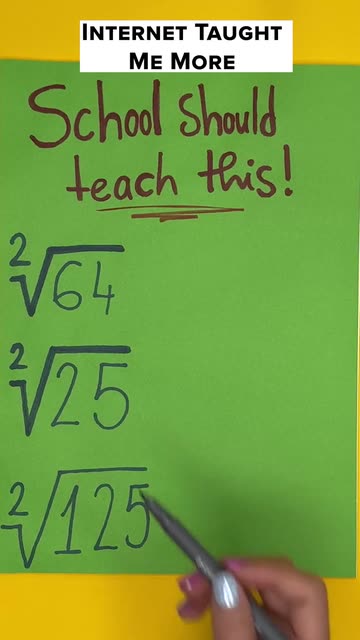 Internet Taught
Me More
School should
teach this!
²√64
²√25
²√125